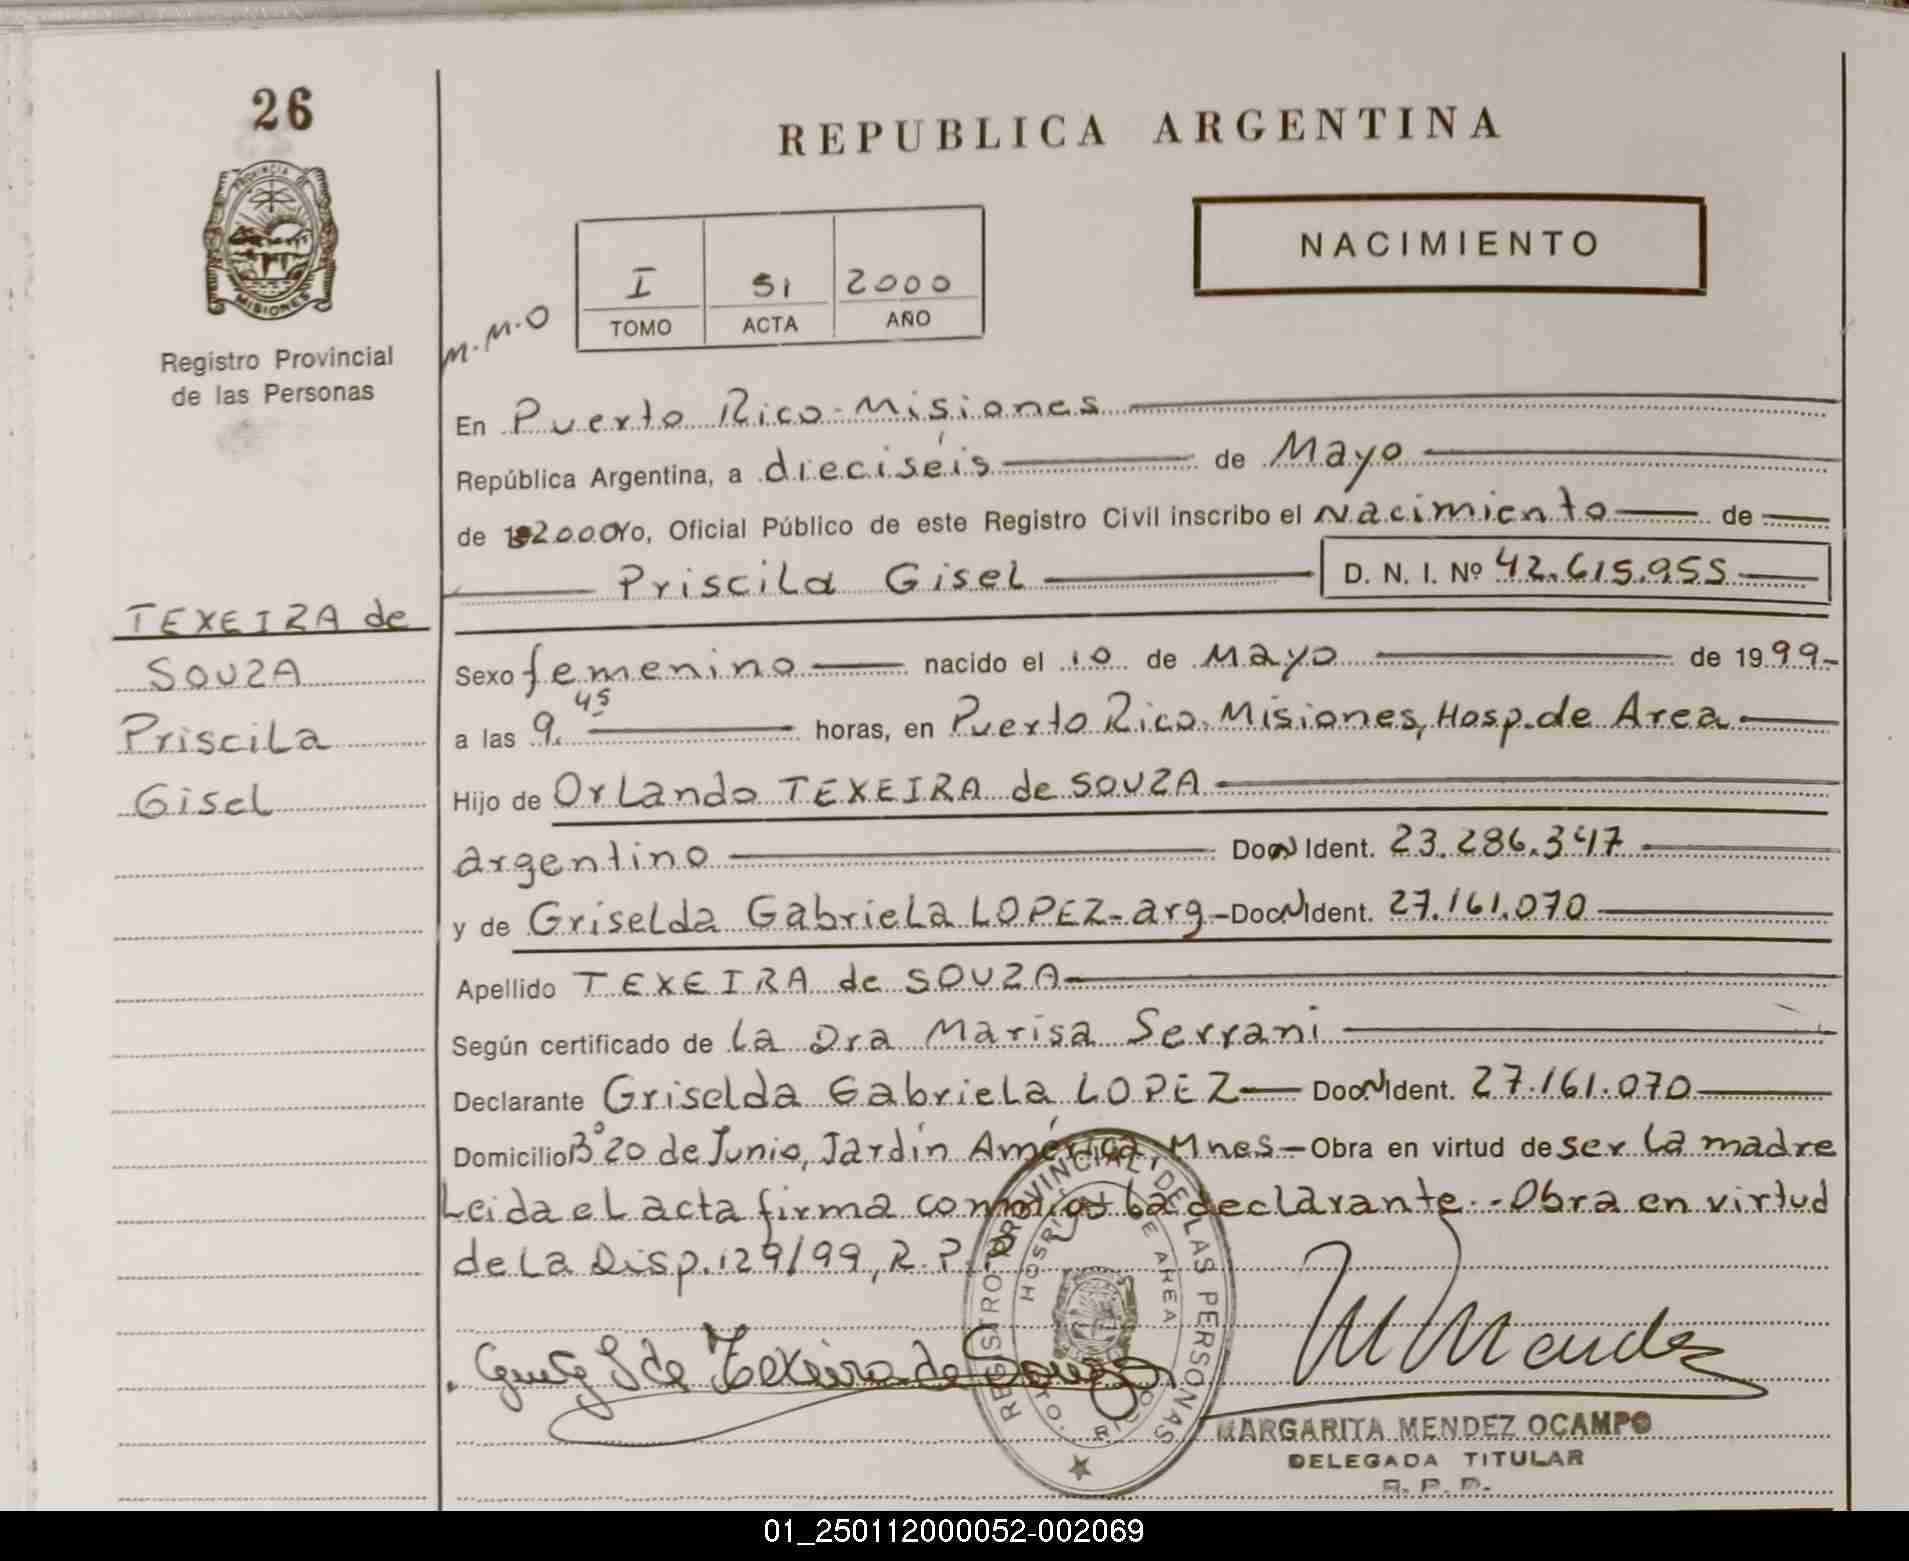 26
REPUBLICA ARGENTINA
PROVINCIA DE
MISIONES
Registro Provincial
de las Personas
NACIMIENTO
M.M.O
I 51 2000
TOMO ACTA AÑO
En Puerto Rico - Misiones
República Argentina, a dieciséis de Mayo
de 2000 Yo, Oficial Público de este Registro Civil inscribo el Nacimiento de
Priscila Gisel D. N. I. Nº 42.615.955
TEXEIRA de
SOUZA
Priscila
Gisel
Sexo femenino nacido el 10 de Mayo de 1999-
a las 9.45 horas, en Puerto Rico. Misiones, Hosp. de Area
Hijo de Orlando TEXEIRA de SOUZA
argentino Doc N Ident. 23.286.347
y de Griselda Gabriela LOPEZ - arg - Doc N Ident. 27.161.070
Apellido TEXEIRA de SOUZA
Según certificado de la Dra Marisa Serrani
Declarante Griselda Gabriela LOPEZ Doc N Ident. 27.161.070
Domicilio Bº 20 de Junio, Jardín América, Mnes - Obra en virtud de ser la madre
Leida el acta firma conmigo la declarante - Obra en virtud
de la Disp. 129/99, R.P.P
REGISTRO PROVINCIAL DE LAS PERSONAS
HOSPITAL DE AREA
PTO. RICO
de Texeira de Souza
M Mendez
MARGARITA MENDEZ OCAMPO
DELEGADA TITULAR
R. P. P.
01_250112000052-002069